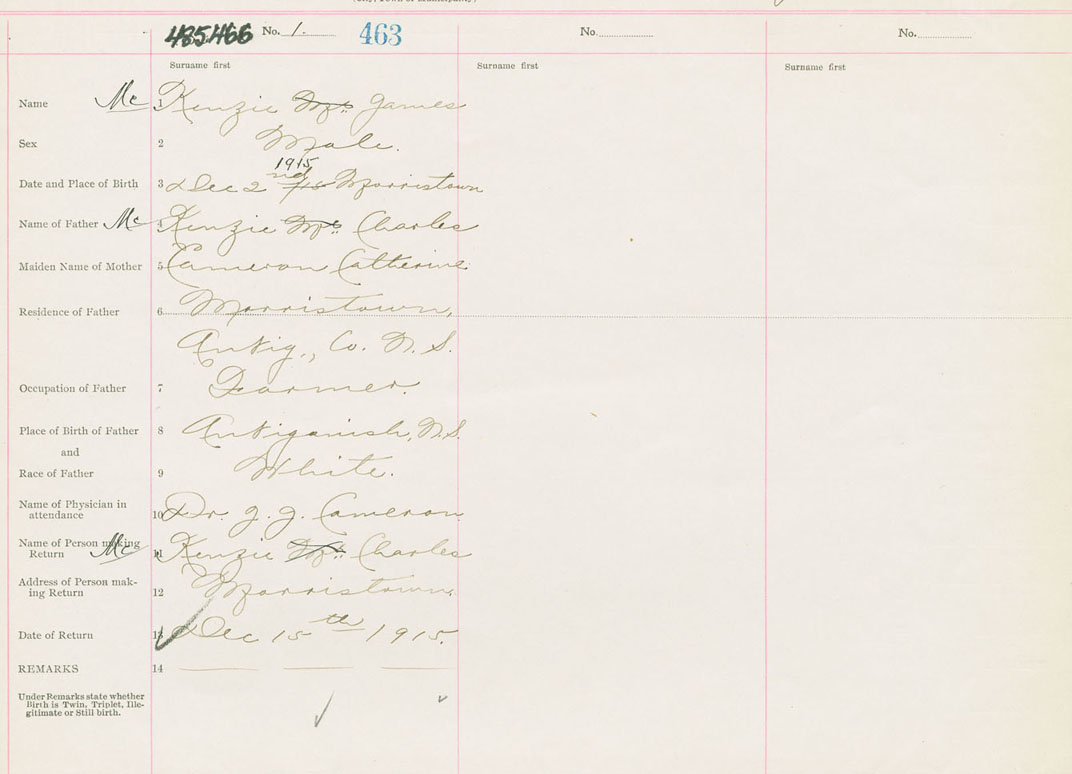 (City, Town or Municipality)
485466 No. 1. 463 No. No.
Surname first Surname first Surname first
Name Mc 1 Kenzie Mc James
Sex 2 Male.
1915
Date and Place of Birth 3 Dec 2nd /15 Morristown
Name of Father Mc 4 Kenzie Mc Charles
Maiden Name of Mother 5 Cameron Catherine
Residence of Father 6 Morristown,
Antig., Co. N. S.
Occupation of Father 7 Farmer.
Place of Birth of Father 8 Antigonish, N.S.
and
Race of Father 9 White.
Name of Physician in
attendance 10 Dr. J. J. Cameron
Name of Person making
Return Mc 11 Kenzie Mc Charles
Address of Person mak-
ing Return 12 Morristown,
Date of Return 13 Dec 15th 1915.
REMARKS 14
Under Remarks state whether
Birth is Twin, Triplet, Ille-
gitimate or Still birth.